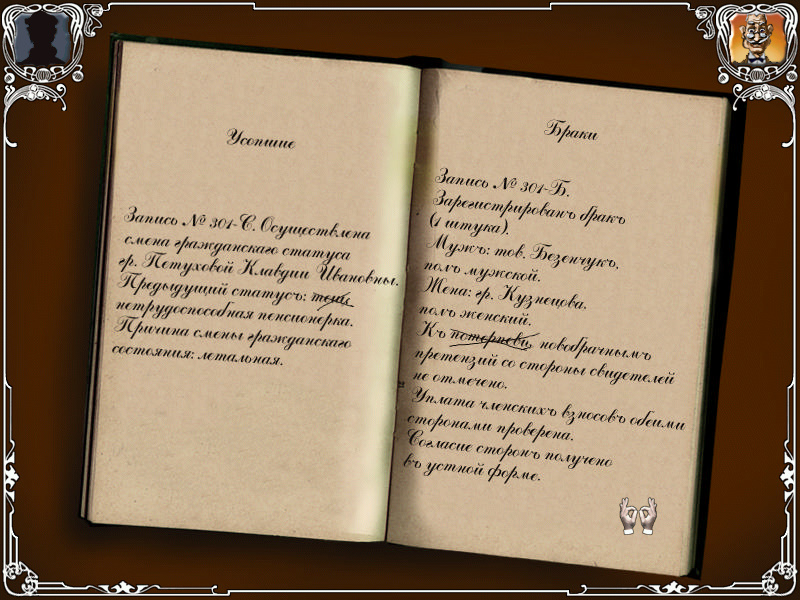 Усопшие
Запись № 301-С. Осуществлена
смена гражданскаго статуса
гр. Петуховой Клавдии Ивановны.
Предыдущий статусъ: теща
нетрудоспособная пенсионерка.
Причина смены гражданскаго
состояния: летальная.
Браки
Запись № 301-Б.
Зарегистрированъ бракъ
(1 штука).
Мужъ: тов. Безенчукъ,
полъ мужской.
Жена: гр. Кузнецова,
полъ женский.
Къ потерпевш. новобрачнымъ
претензий со стороны свидетелей
не отмечено.
Уплата членскихъ взносовъ обеими
сторонами проверена.
Согласие сторонъ получено
въ устной форме.